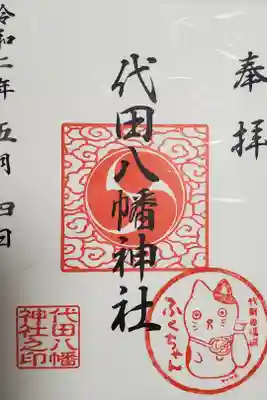 奉拝
代田八幡神社
令和二年五月四日
代田八幡
神社之印
ふくちゃん